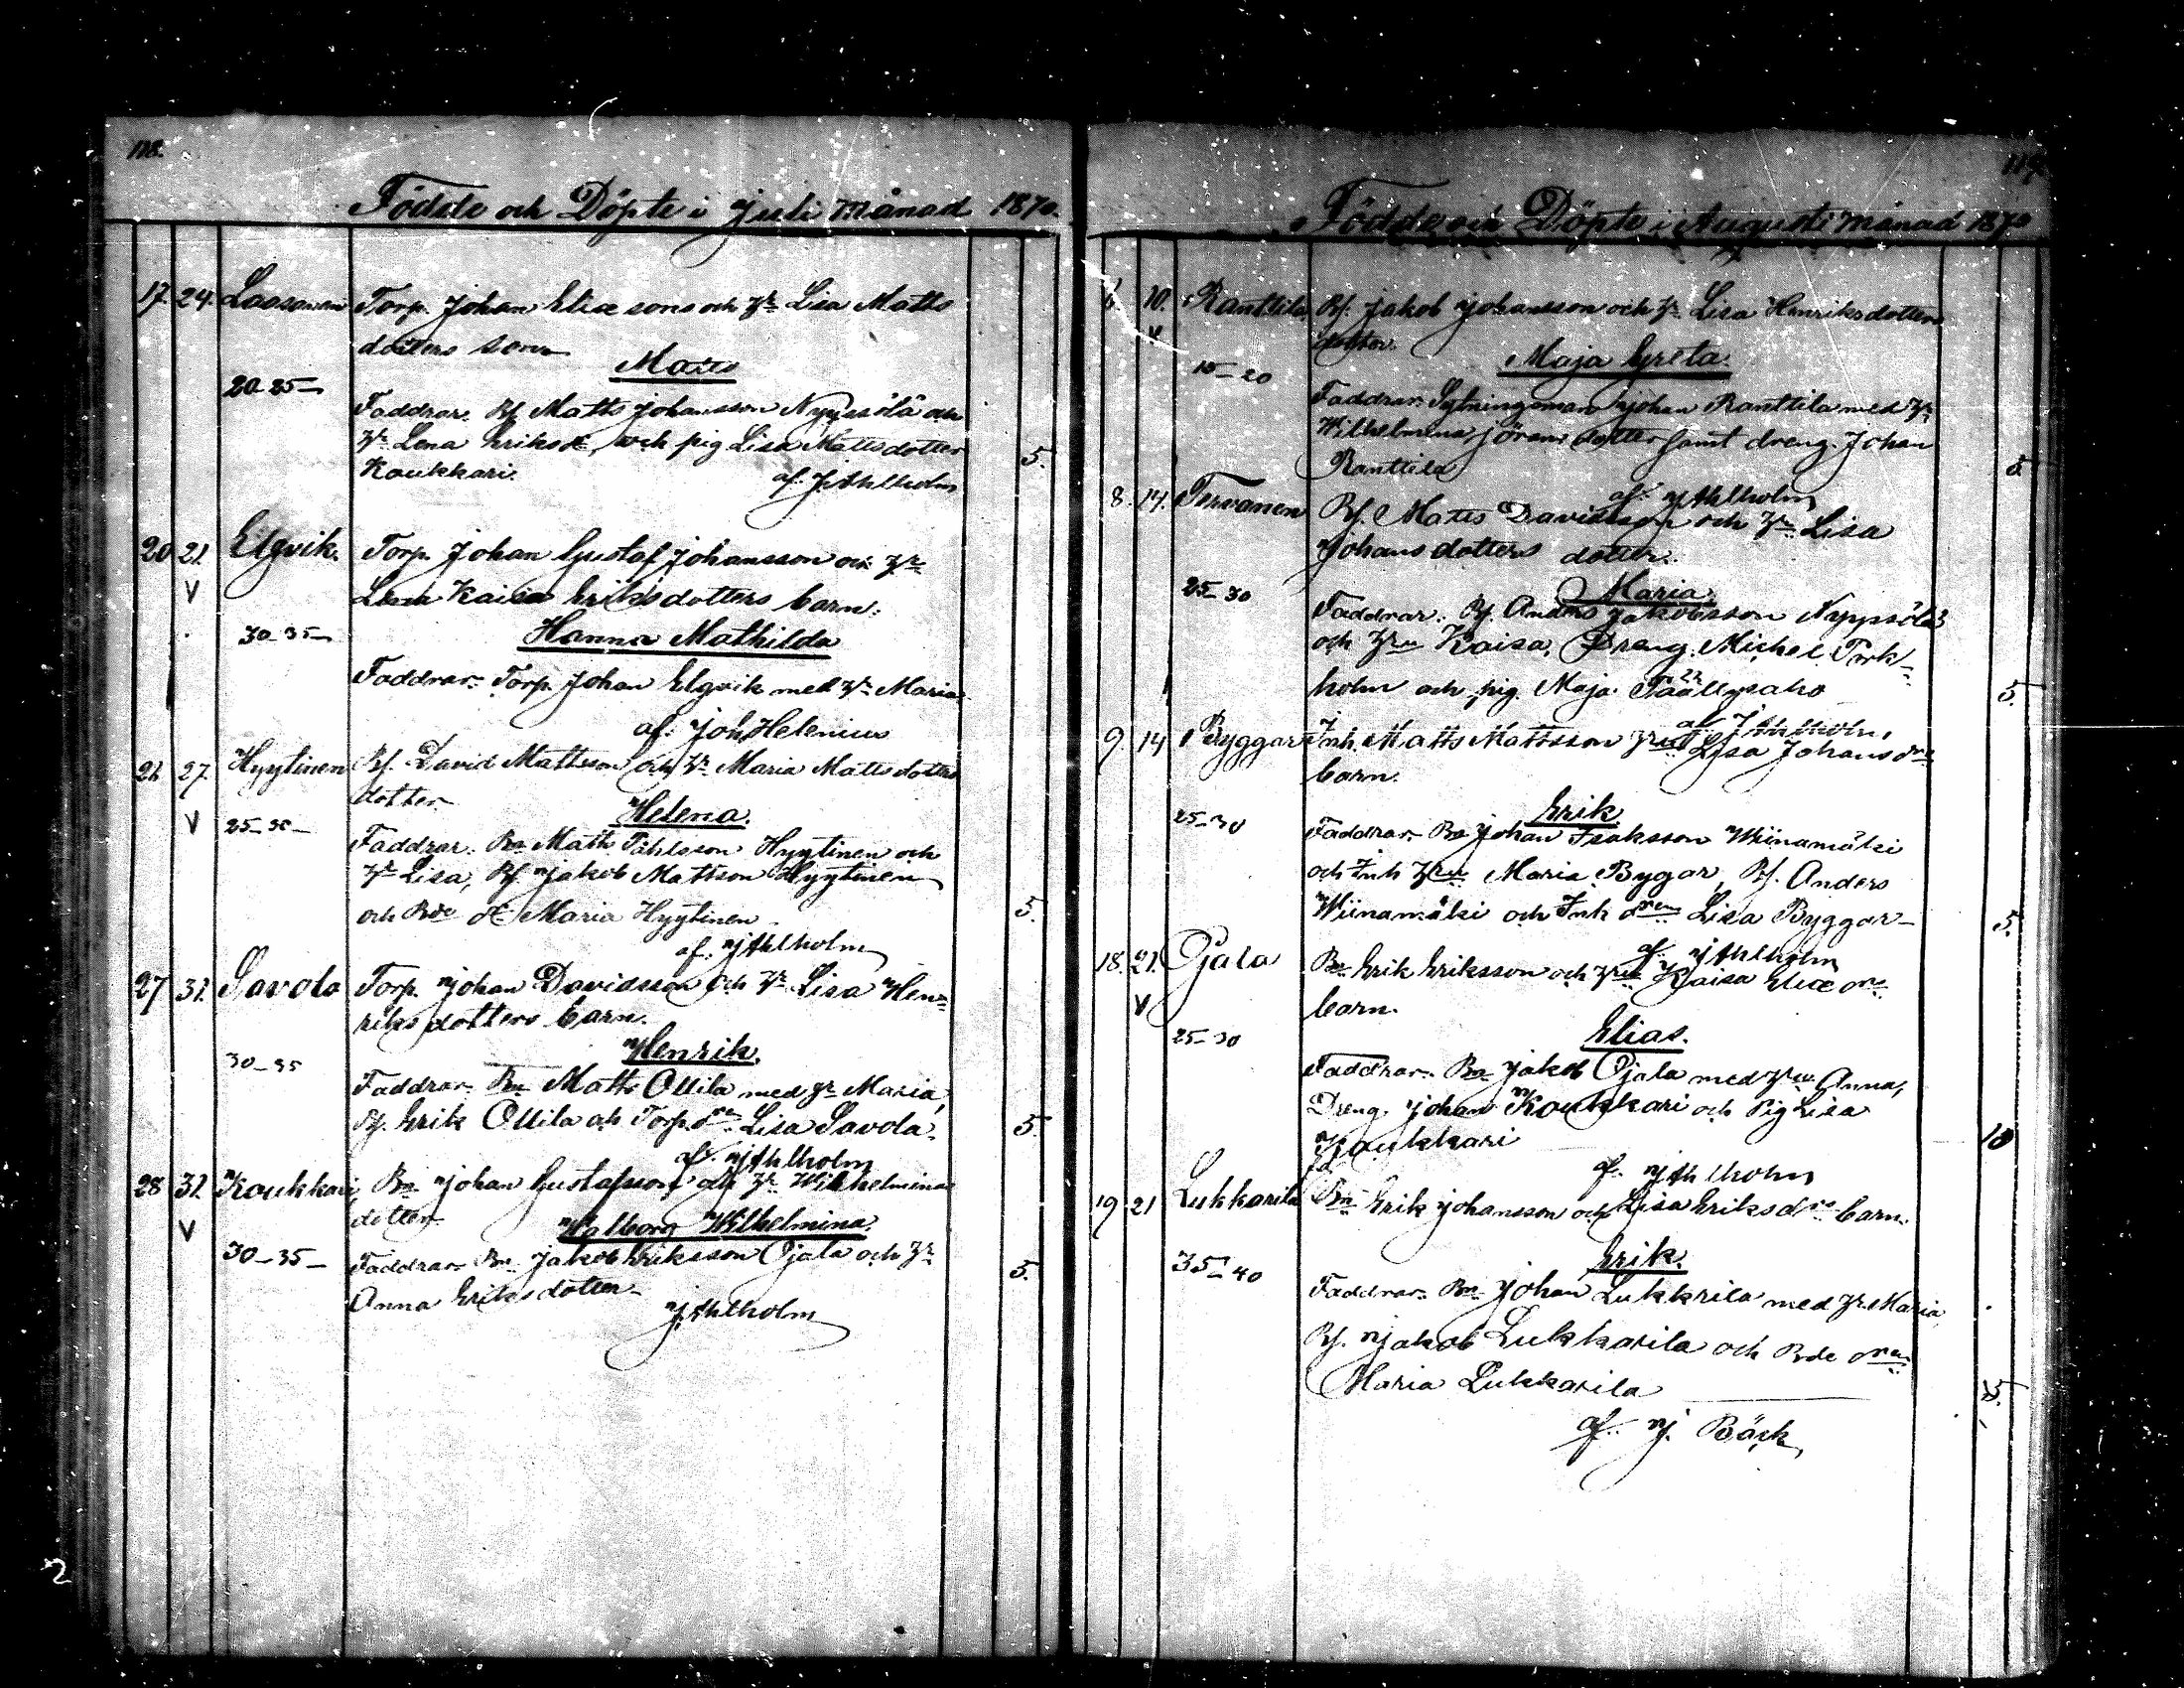 118.
Födde och Döpte i Juli Månad 1870.
17. 24. Lassonen Torp. Johan Eliæ sons och Hr Lisa Matts
dotters son
Matts
20-25-
Faddrar. Bs. Matts Johansson Nyyssölä och
Hr Lena Eriksdr, och pig Lisa Mattsdotter
Koukkari. 5.
af. J. Ahlholm
20 21. Elgvik. Torp. Johan Gustaf Johansson och Hr
V Lena Kaisa Eriksdotters barn.
30-35- Hanna Mathilda
Faddrar. Torp. Johan Elgvik med Hr Maria
af. Joh. Helenius
21. 27. Hyytinen Bs. David Mattsson och Hr Maria Mattsdotters
dotter
V 25-30- Helena.
Faddrar. Bn Matts Påhlsson Hyytinen och
Hr Lisa, Bs. Jakob Mattson Hyytinen
och Bde Hr Maria Hyytinen 5.
af. J Ahlholm
27 31. Savola Torp. Johan Davidsson och Hr Lisa Hen-
riks dotters barn.
Henrik.
30-35
Faddrar. Bn Matts Ollila med Hr Maria,
Bs. Erik Ollila och Torp. drn Lisa Savola. 5.
af. J Ahlholm
28 31. Koukkari Bn Johan Gustafsson och Hr Wilhelmina
dotter
V Walborg Wilhelmina.
30-35-
Faddrar Bn Jakob Eriksson Ojala och Hr 5.
Anna Eriksdotter
J. Ahlholm
2
Födde och Döpte i Augusti månad 1870
6. 10. Ranttila Bs. Jakob Johansson och Hr Lisa Henriksdotters
V dotter.
Maja Greta.
15-20
Faddrar. Sytningsman Johan Ranttila med Hr
Wilhelmina Jörans dotter samt dreng. Johan
Ranttila 5.
af. J Ahlholm
8. 14. Tervanen Bs. Matts Davidsson och Hr Lisa
Johans dotters dotter.
25-30 Maria.
Faddrar. Bs. Anders Jakobsson Nyyssölä
och Hru Kaisa, Dreng. Michel Tork-
holm och pig. Maja Päällysaho 5.
af J Ahlholm.
9. 14 Byggar Inh. Matts Mattsson Hru Lisa Johans drs
barn.
Erik
25-30
Faddrar. Bn Johan Isaksson Wiinamäki
och Inh Hru Maria Bygar, Bs. Anders
Wiinamäki och Inh drn Lisa Byggar- 5.
af. J Ahlholm
18. 21. Ojala Bn Erik Eriksson och Hru Kaisa Eliæ drs
V barn.
25-30 Elias.
Faddrar. Bn Jakob Ojala med Hru Anna,
Dreng. Johan Koukkari och Pig Lisa
Koukkari 10
af. J Ahlholm
19 21 Lukkarila Bn Erik Johansson och Lisa Eriksdrs barn.
Erik.
35-40
Faddrar. Bn Johan Lukkrila med Hr Maria
Bs. Jakob Lukkarila och Bde drn
Maria Lukkarila 5.
af. J. Bäck